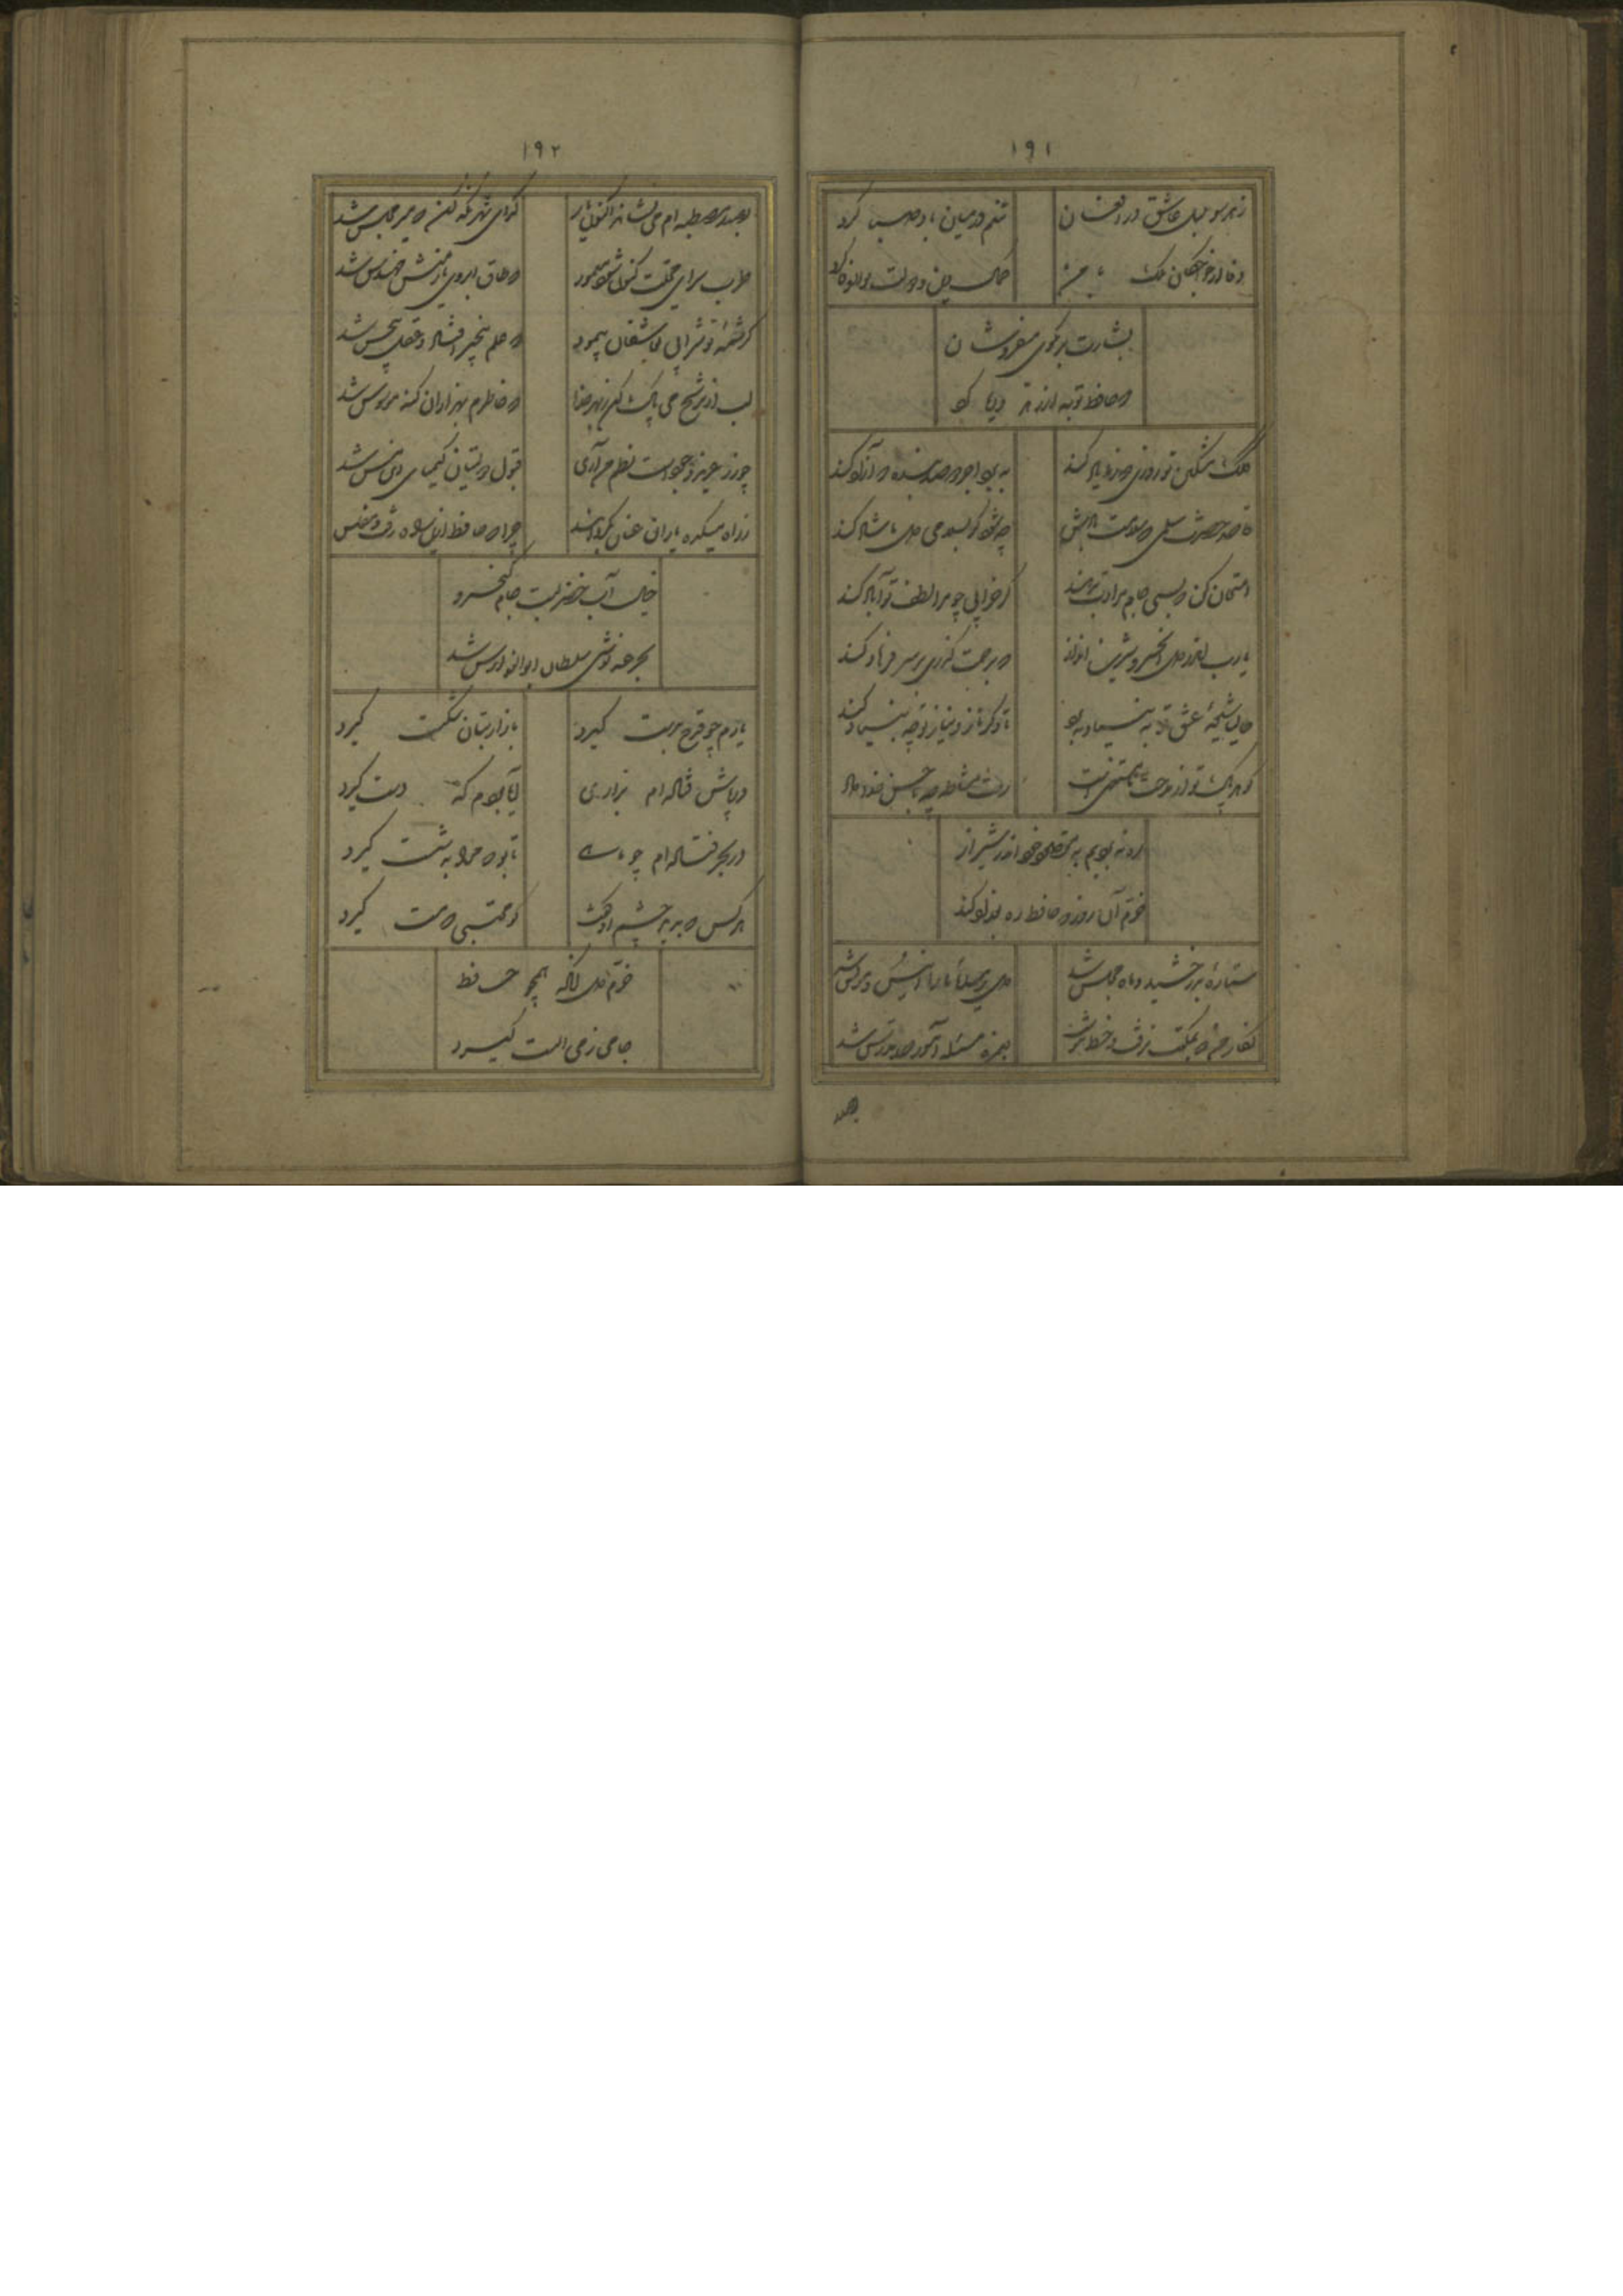 ۱۹۱
ز هر سو بلبل عاشق در افغان
تنعم در میان باد صبا کرد
وفا از خواجگان ملک با من
کمال دین و دولت بوالوفا کرد
بشارت بر بکوی میفروشان
که حافظ توبه از زهد و ریا کرد
کلک مشکین تو روزی که ز ما یاد کند
ببرد اجر دو صد بنده که آزاد کند
قاصد حضرت سلمی که سلامت بادش
چه شود گر بسلامی دل ما شاد کند
امتحان کن که بسی جام مرادت بدهند
گر خرابی چو مرا لطف تو آباد کند
یا رب اندر دل آن خسرو شیرین انداز
که برحمت گذری بر سر فرهاد کند
حالیا عشوهٔ عشق تو ز بنیادم برد
تا دگر ناز و نیاز تو چه بنیاد کند
گوهر پاک تو از مدحت ما مستغنیست
مشاطه چه با حسن خداداد
ره نبردیم به مقصود خود اندر شیراز
خرم آن روز که حافظ ره بغداد کند
ستارهٔ بدرخشید و ماه مجلس شد
دل رمیدهٔ ما را انیس و مونس شد
نگار من که بمکتب نرفت و خط ننوشت
بغمزه مسئله آموز صد مدرس شد
۱۹۲
بصدر مصطبه ام می نشاند اکنون یار
گدای شهر نگه کن که میر مجلس شد
طرب سرای محبت کنون شود معمور
که طاق ابروی یار منش مهندس شد
کرشمهٔ تو شرابی بعاشقان پیمود
که علم بیخبر افتاد و عقل بیحس شد
لب از ترشح می پاک کن ز بهر خدا
که خاطرم بهزاران گنه موسوس شد
چو زر عزیز وجودست نظم من آری
قبول دولتیان کیمیای این مس شد
ز راه میکده یاران عنان بگردانید
چرا که حافظ ازین راه رفت و مفلس شد
خیال آب خضر بست و جام کیخسرو
بجرعه نوشی سلطان ابوالفوارس شد
یارم چو قدح بدست گیرد
بازار بتان شکست گیرد
در پاش فتاده ام بزاری
آیا بود آنکه دست گیرد
در بحر فتاده ام چو ماهی
تا یار مرا به شست گیرد
هر کس که بدید چشم او گفت
کو محتسبی که مست گیرد
خرم دل آنکه همچو حافظ
جامی ز می الست گیرد